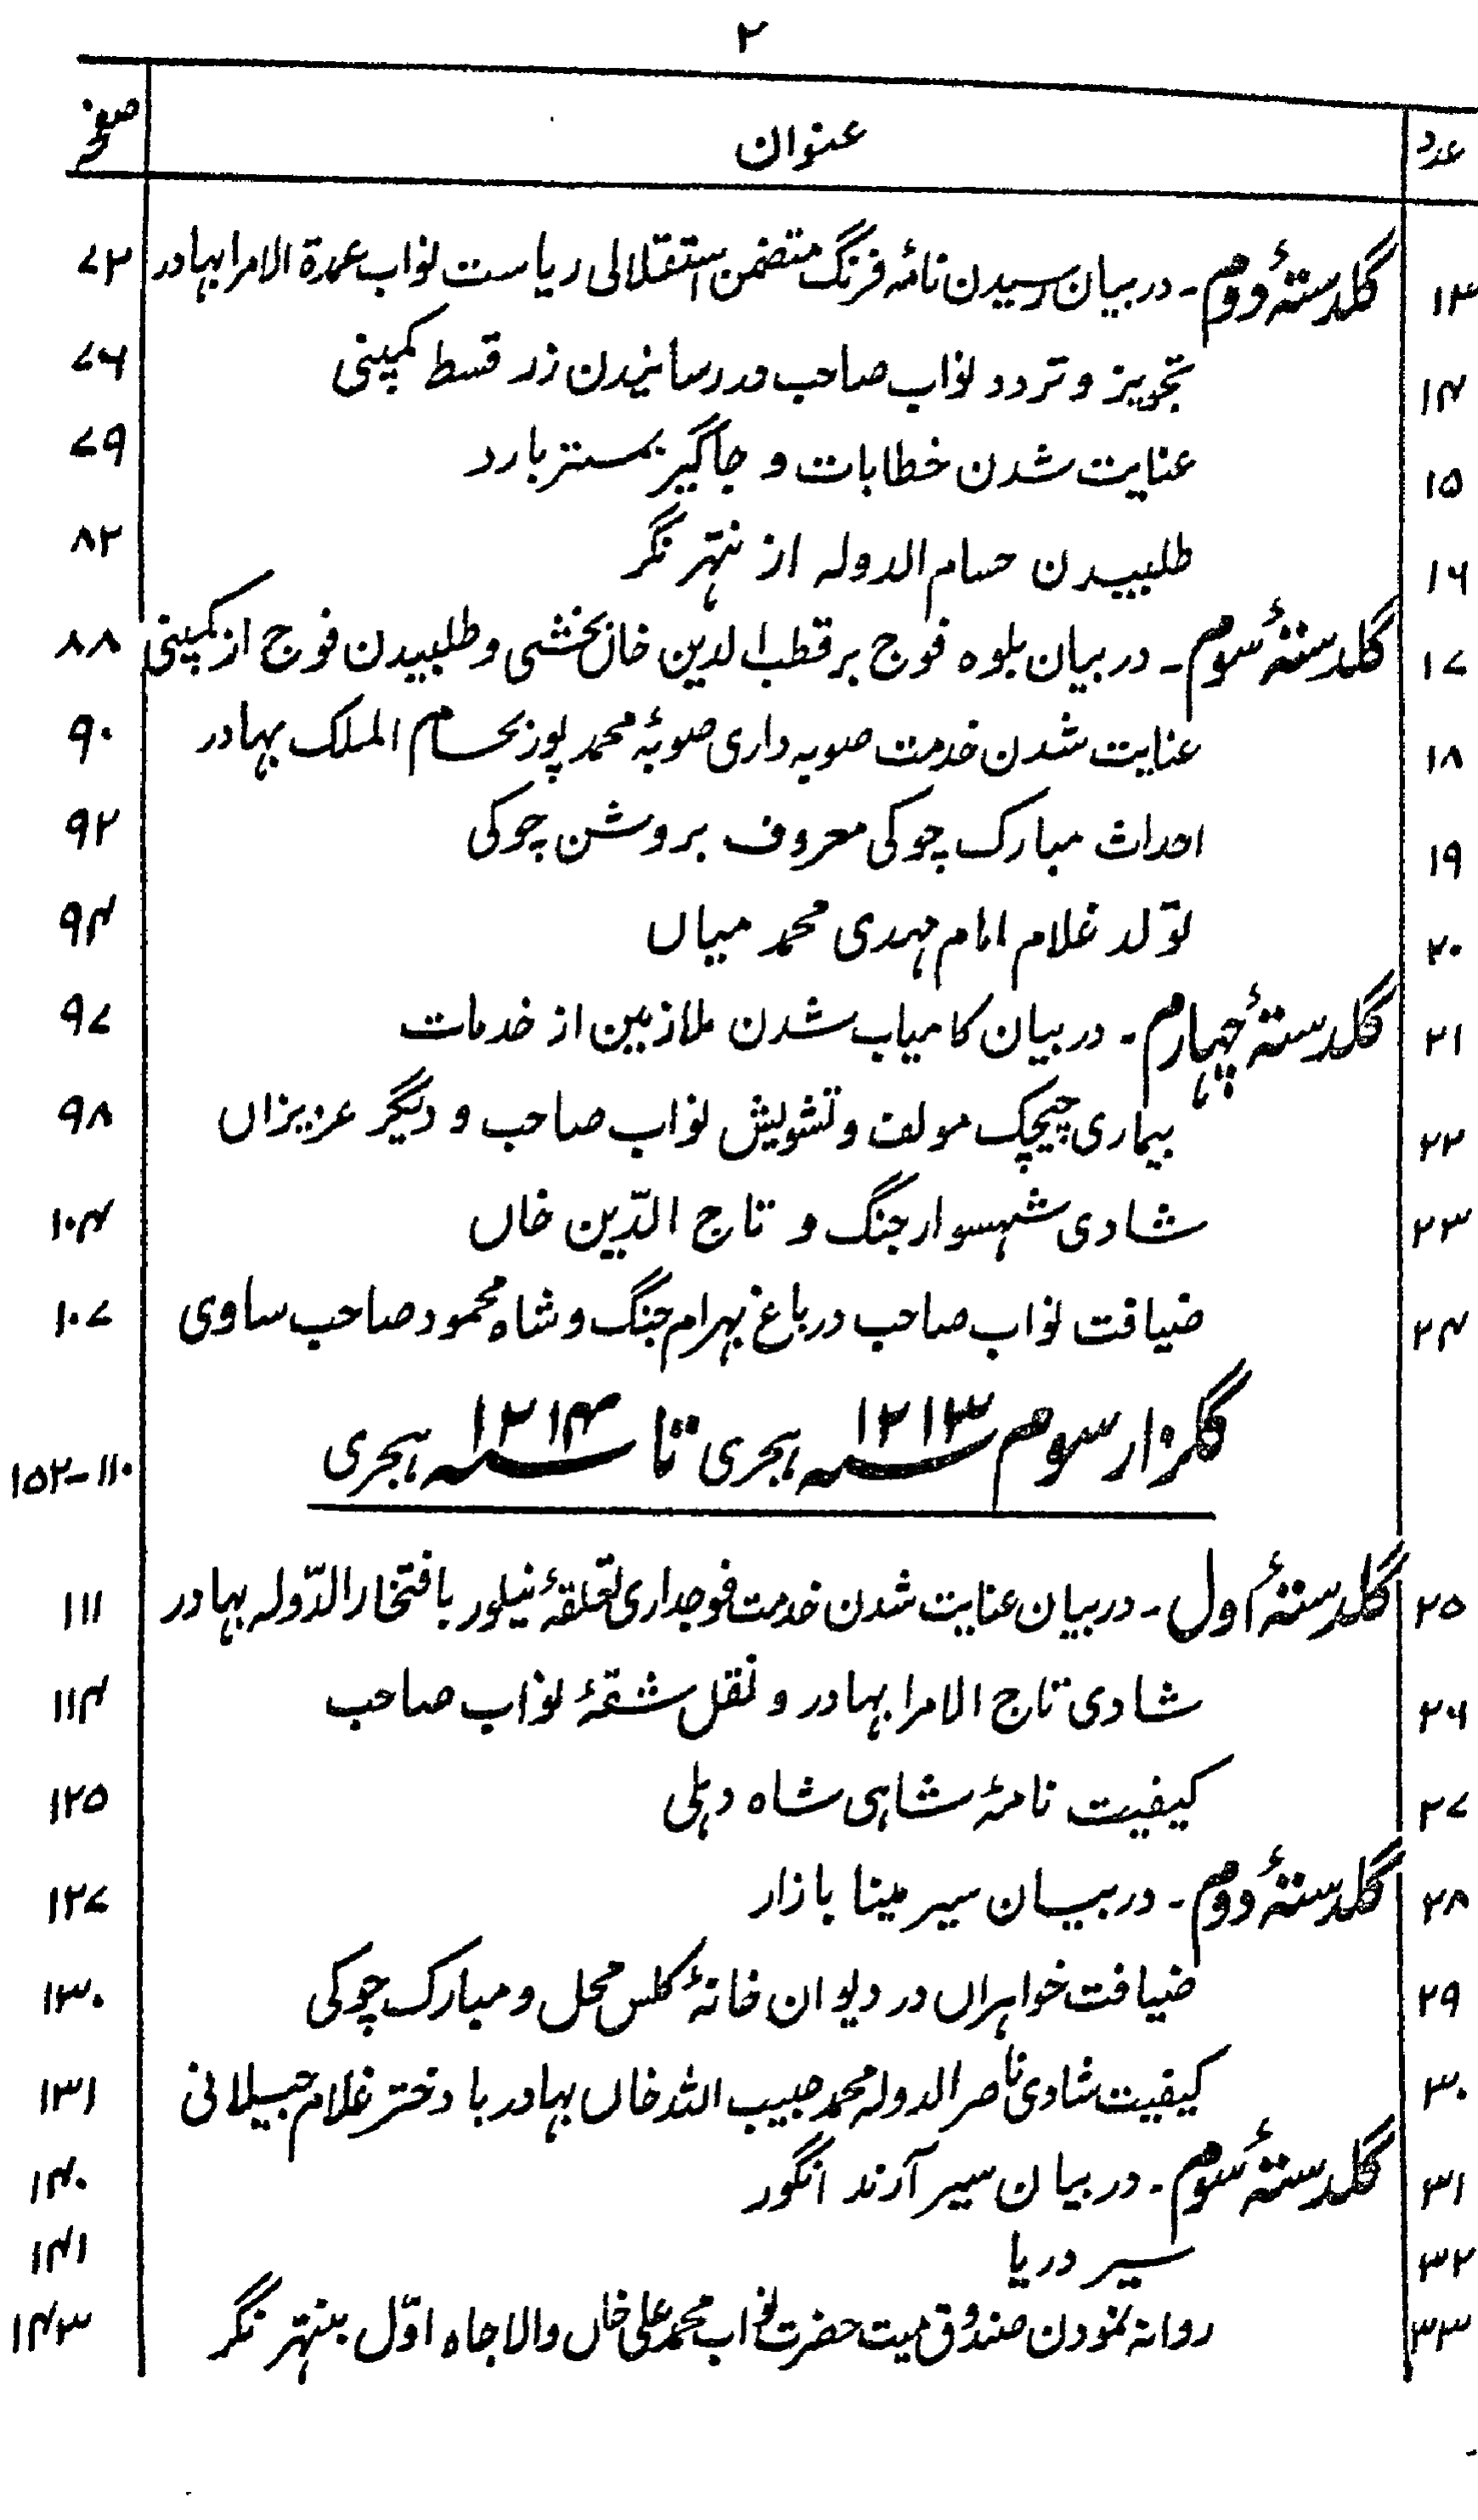 ۲
عدد عنوان صفحہ
۱۳ گلدستۂ دوم۔ در بیان رسیدن نامۂ فرنگ متضمن استقلالی ریاست نواب عمدۃ الامرا بہادر ۷۲
۱۴ تجویز و تردد نواب صاحب در رسانیدن زر قسط کمپنی ۷۶
۱۵ عنایت شدن خطابات و جاگیر بمستر بارد ۷۹
۱۶ طلبیدن حسام الدولہ از نتہر نگر ۸۲
۱۷ گلدستۂ سوم۔ در بیان بلوہ فوج بر قطب الدین خان بخشی و طلبیدن فوج از کمپنی ۸۸
۱۸ عنایت شدن خدمت صوبہ داری صوبۂ محمد پور بحسام الملک بہادر ۹۰
۱۹ احداث مبارک چوکی معروف بروشن چوکی ۹۲
۲۰ تولد غلام امام مہدی محمد میاں ۹۴
۲۱ گلدستۂ چہارم۔ در بیان کامیاب شدن ملازمین از خدمات ۹۷
۲۲ بیماری چیچک مولف و تشویش نواب صاحب و دیگر عزیزاں ۹۸
۲۳ شادی شہسوار جنگ و تاج الدّین خاں ۱۰۴
۲۴ ضیافت نواب صاحب در باغ بہرام جنگ و شاہ محمود صاحب ساوی ۱۰۷
گلزار سوم ۱۲۱۳ ہجری تا ۱۲۱۴ ہجری ۱۱۰-۱۵۲
۲۵ گلدستۂ اول۔ در بیان عنایت شدن خدمت فوجداری تعلقۂ نیلور بافتخار الدّولہ بہادر ۱۱۱
۲۶ شادی تاج الامرا بہادر و نقل شقۂ نواب صاحب ۱۱۴
۲۷ کیفیت نامۂ شاہی شاہ دہلی ۱۲۵
۲۸ گلدستۂ دوم۔ در بیان سیر مینا بازار ۱۲۷
۲۹ ضیافت خواہراں در دیوان خانۂ کلس محل و مبارک چوکی ۱۳۰
۳۰ کیفیت شادی ناصر الدولہ محمد حبیب اللہ خاں بہادر با دختر غلام جیلانی ۱۳۱
۳۱ گلدستۂ سوم۔ در بیان سیر آرند انگور ۱۴۰
۳۲ سیر دریا ۱۴۱
۳۳ روانہ نمودن صندوق میت حضرت نواب محمد علی خاں والا جاہ اوّل بنتہر نگر ۱۴۳